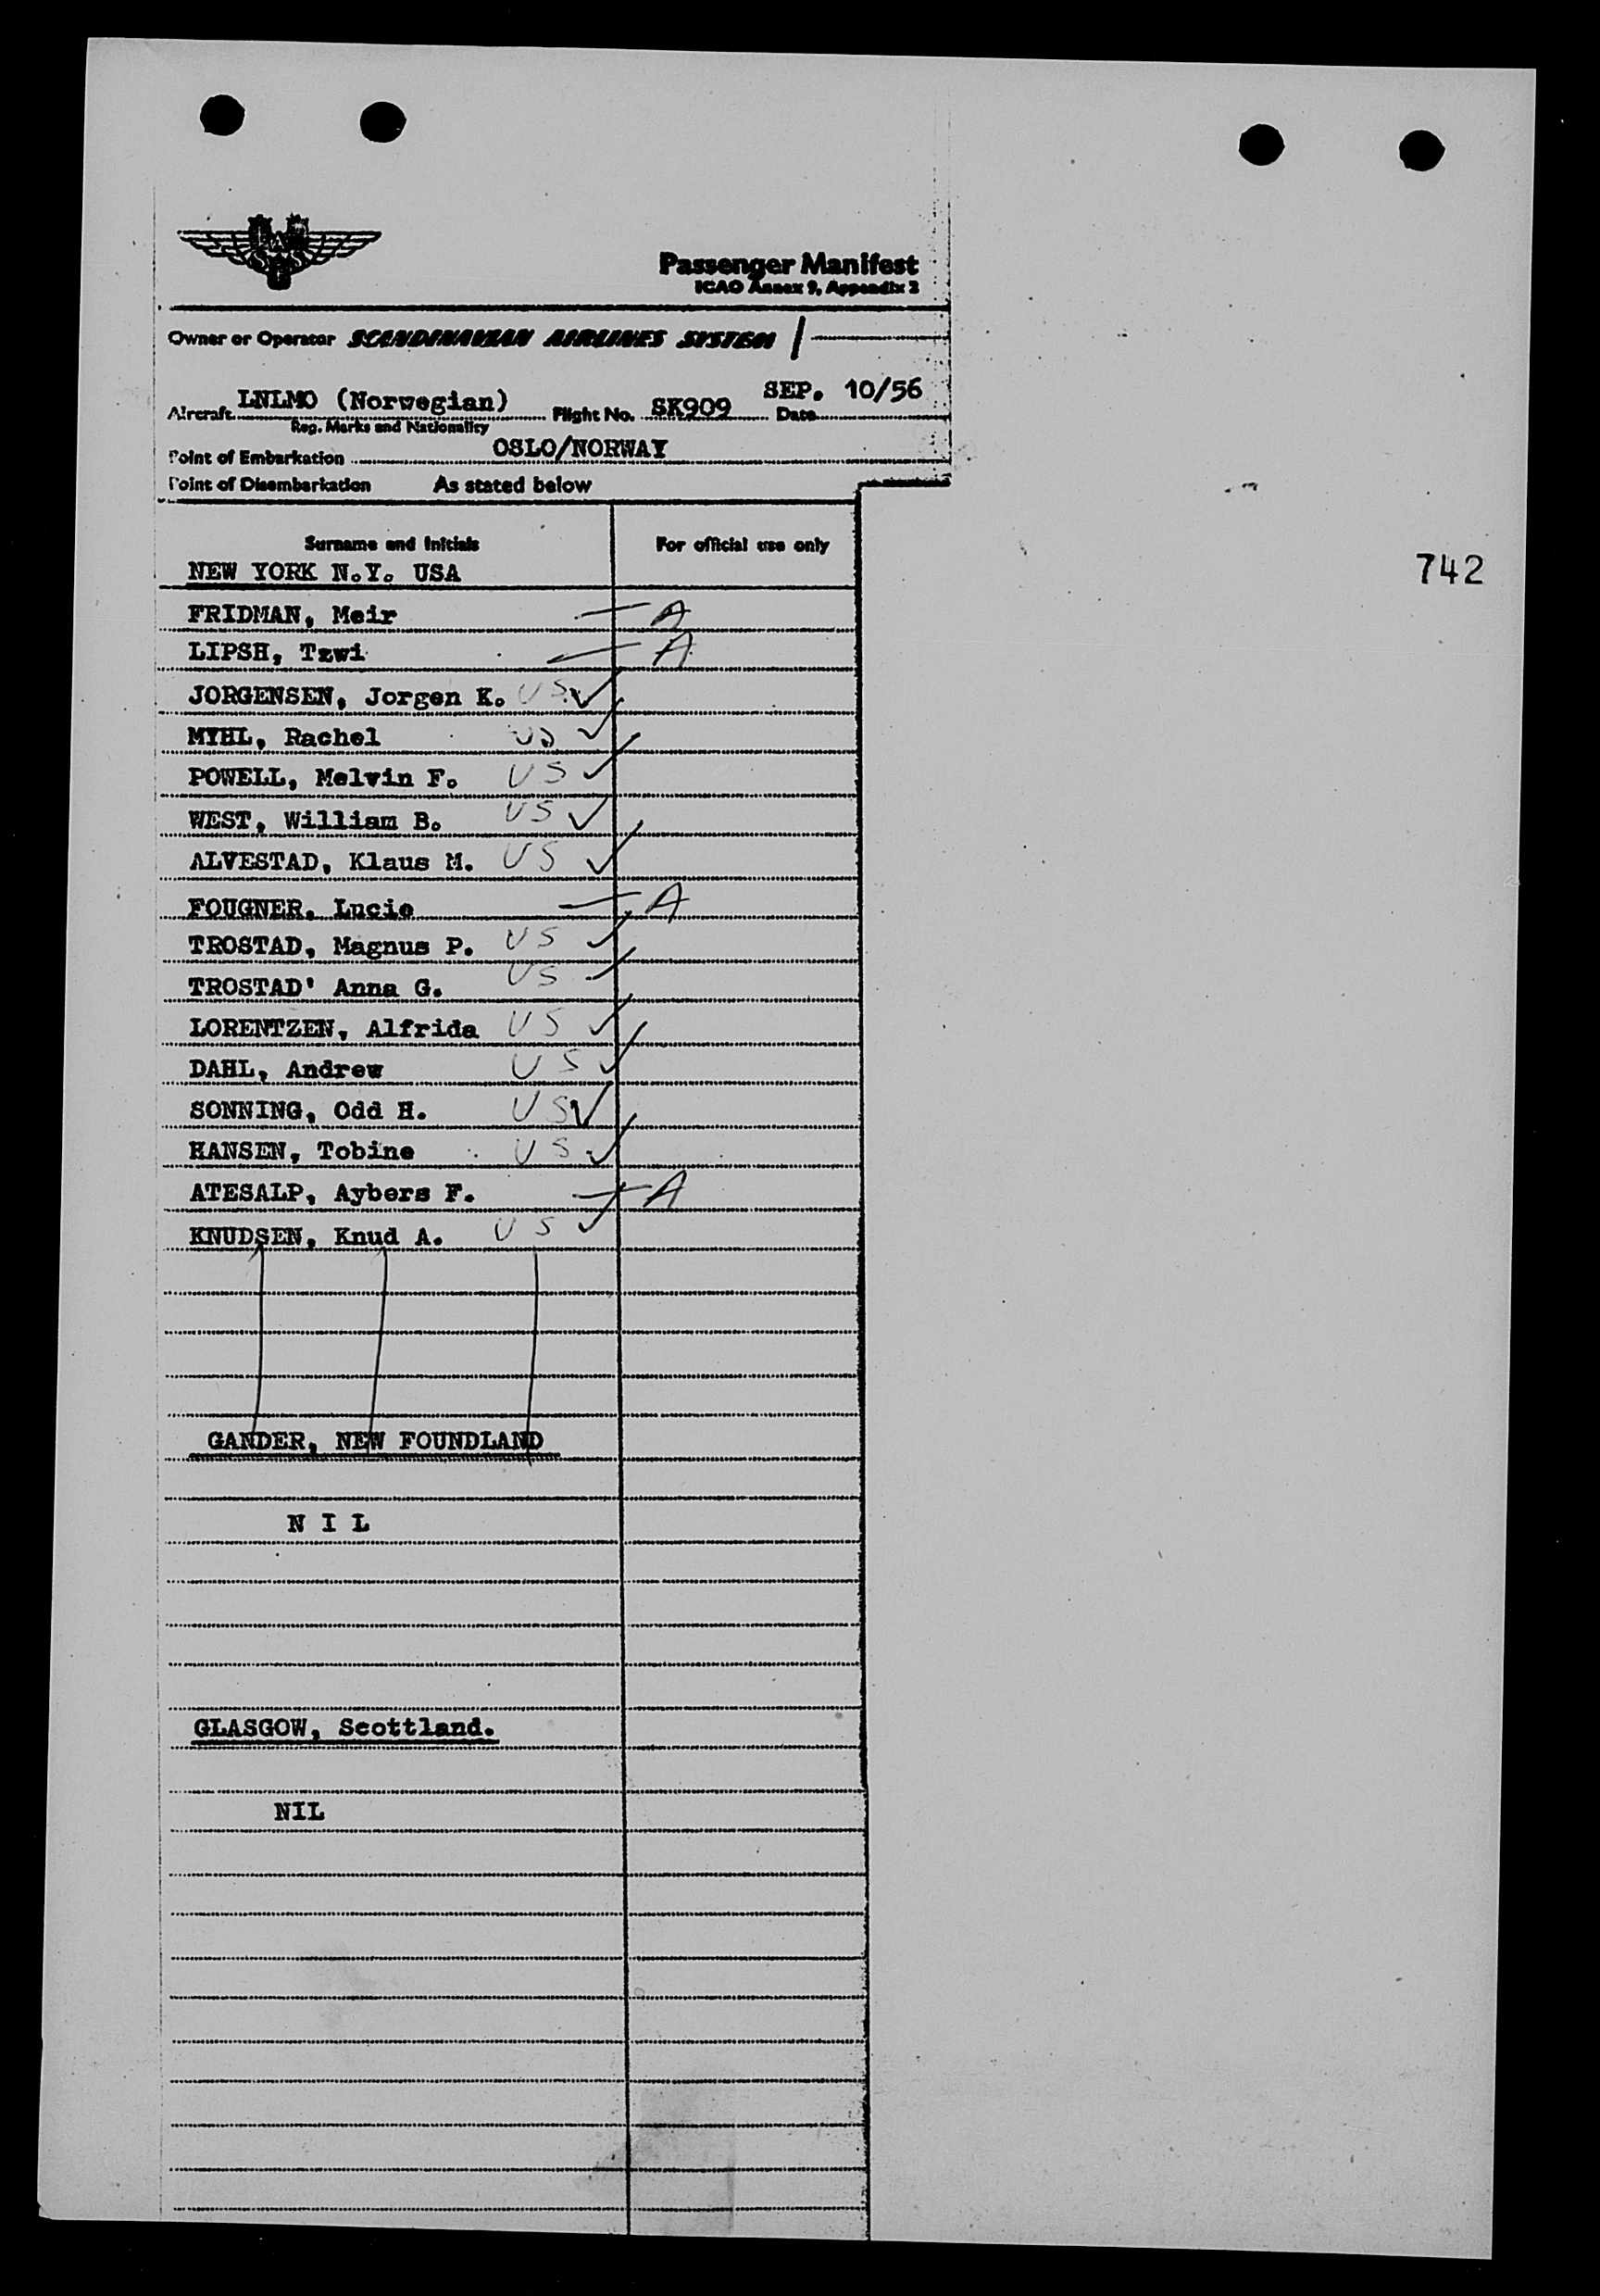 SAS
Passenger Manifest
ICAO Annex 9, Appendix 2
Owner or Operator SCANDINAVIAN AIRLINES SYSTEM /
SEP. 10/56
Aircraft LNLMO (Norwegian) Flight No. SK909 Date
Reg. Marks and Nationality
Point of Embarkation OSLO/NORWAY
Point of Disembarkation As stated below
Surname and Initials For official use only
NEW YORK N.Y. USA
742
FRIDMAN, Meir — A
LIPSH, Tzwi — A
JORGENSEN, Jorgen K. US ✓
MYHL, Rachel US ✓
POWELL, Melvin F. US ✓
WEST, William B. US ✓
ALVESTAD, Klaus M. US ✓
FOUGNER, Lucie — A
TROSTAD, Magnus P. US ✓
TROSTAD' Anna G. US ✓
LORENTZEN, Alfrida US ✓
DAHL, Andrew US ✓
SONNING, Odd H. US ✓
HANSEN, Tobine US ✓
ATESALP, Aybers F. — A
KNUDSEN, Knud A. US ✓
GANDER, NEW FOUNDLAND
N I L
GLASGOW, Scottland.
NIL